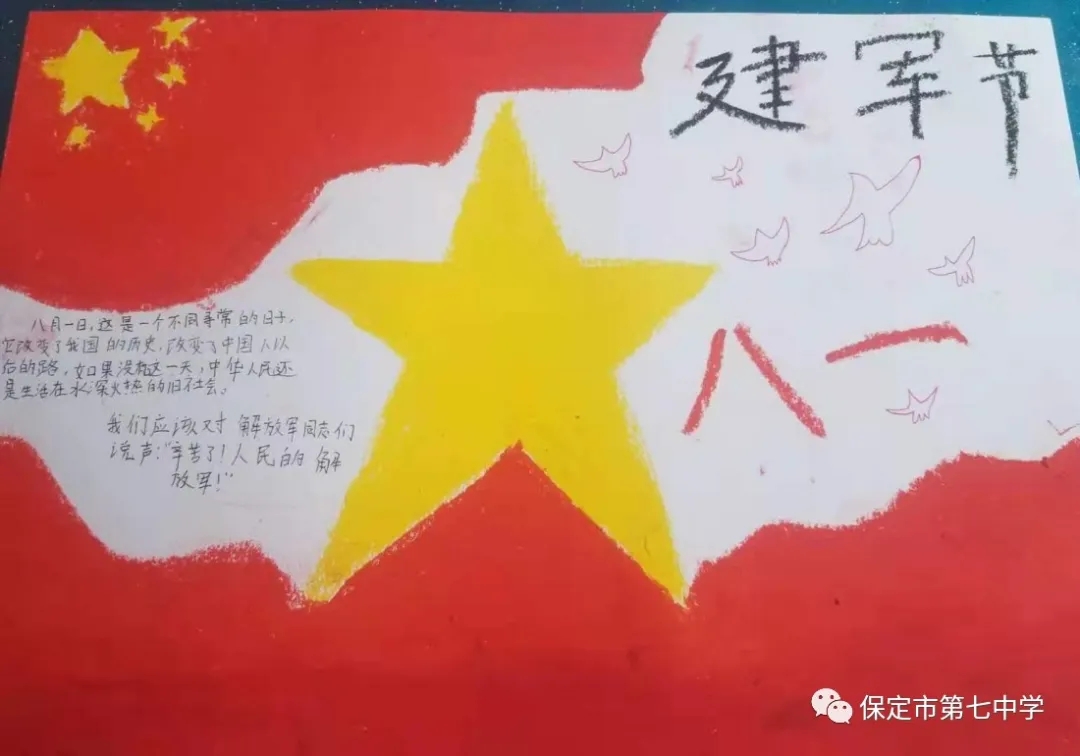 建军节
八一
八月一日，这是一个不同寻常的日子，
它改变了我国的历史，改变了中国人以
后的路，如果没有这一天，中华人民还
是生活在水深火热的旧社会。
我们应该对解放军同志们
说声："辛苦了！人民的解
放军！"
保定市第七中学